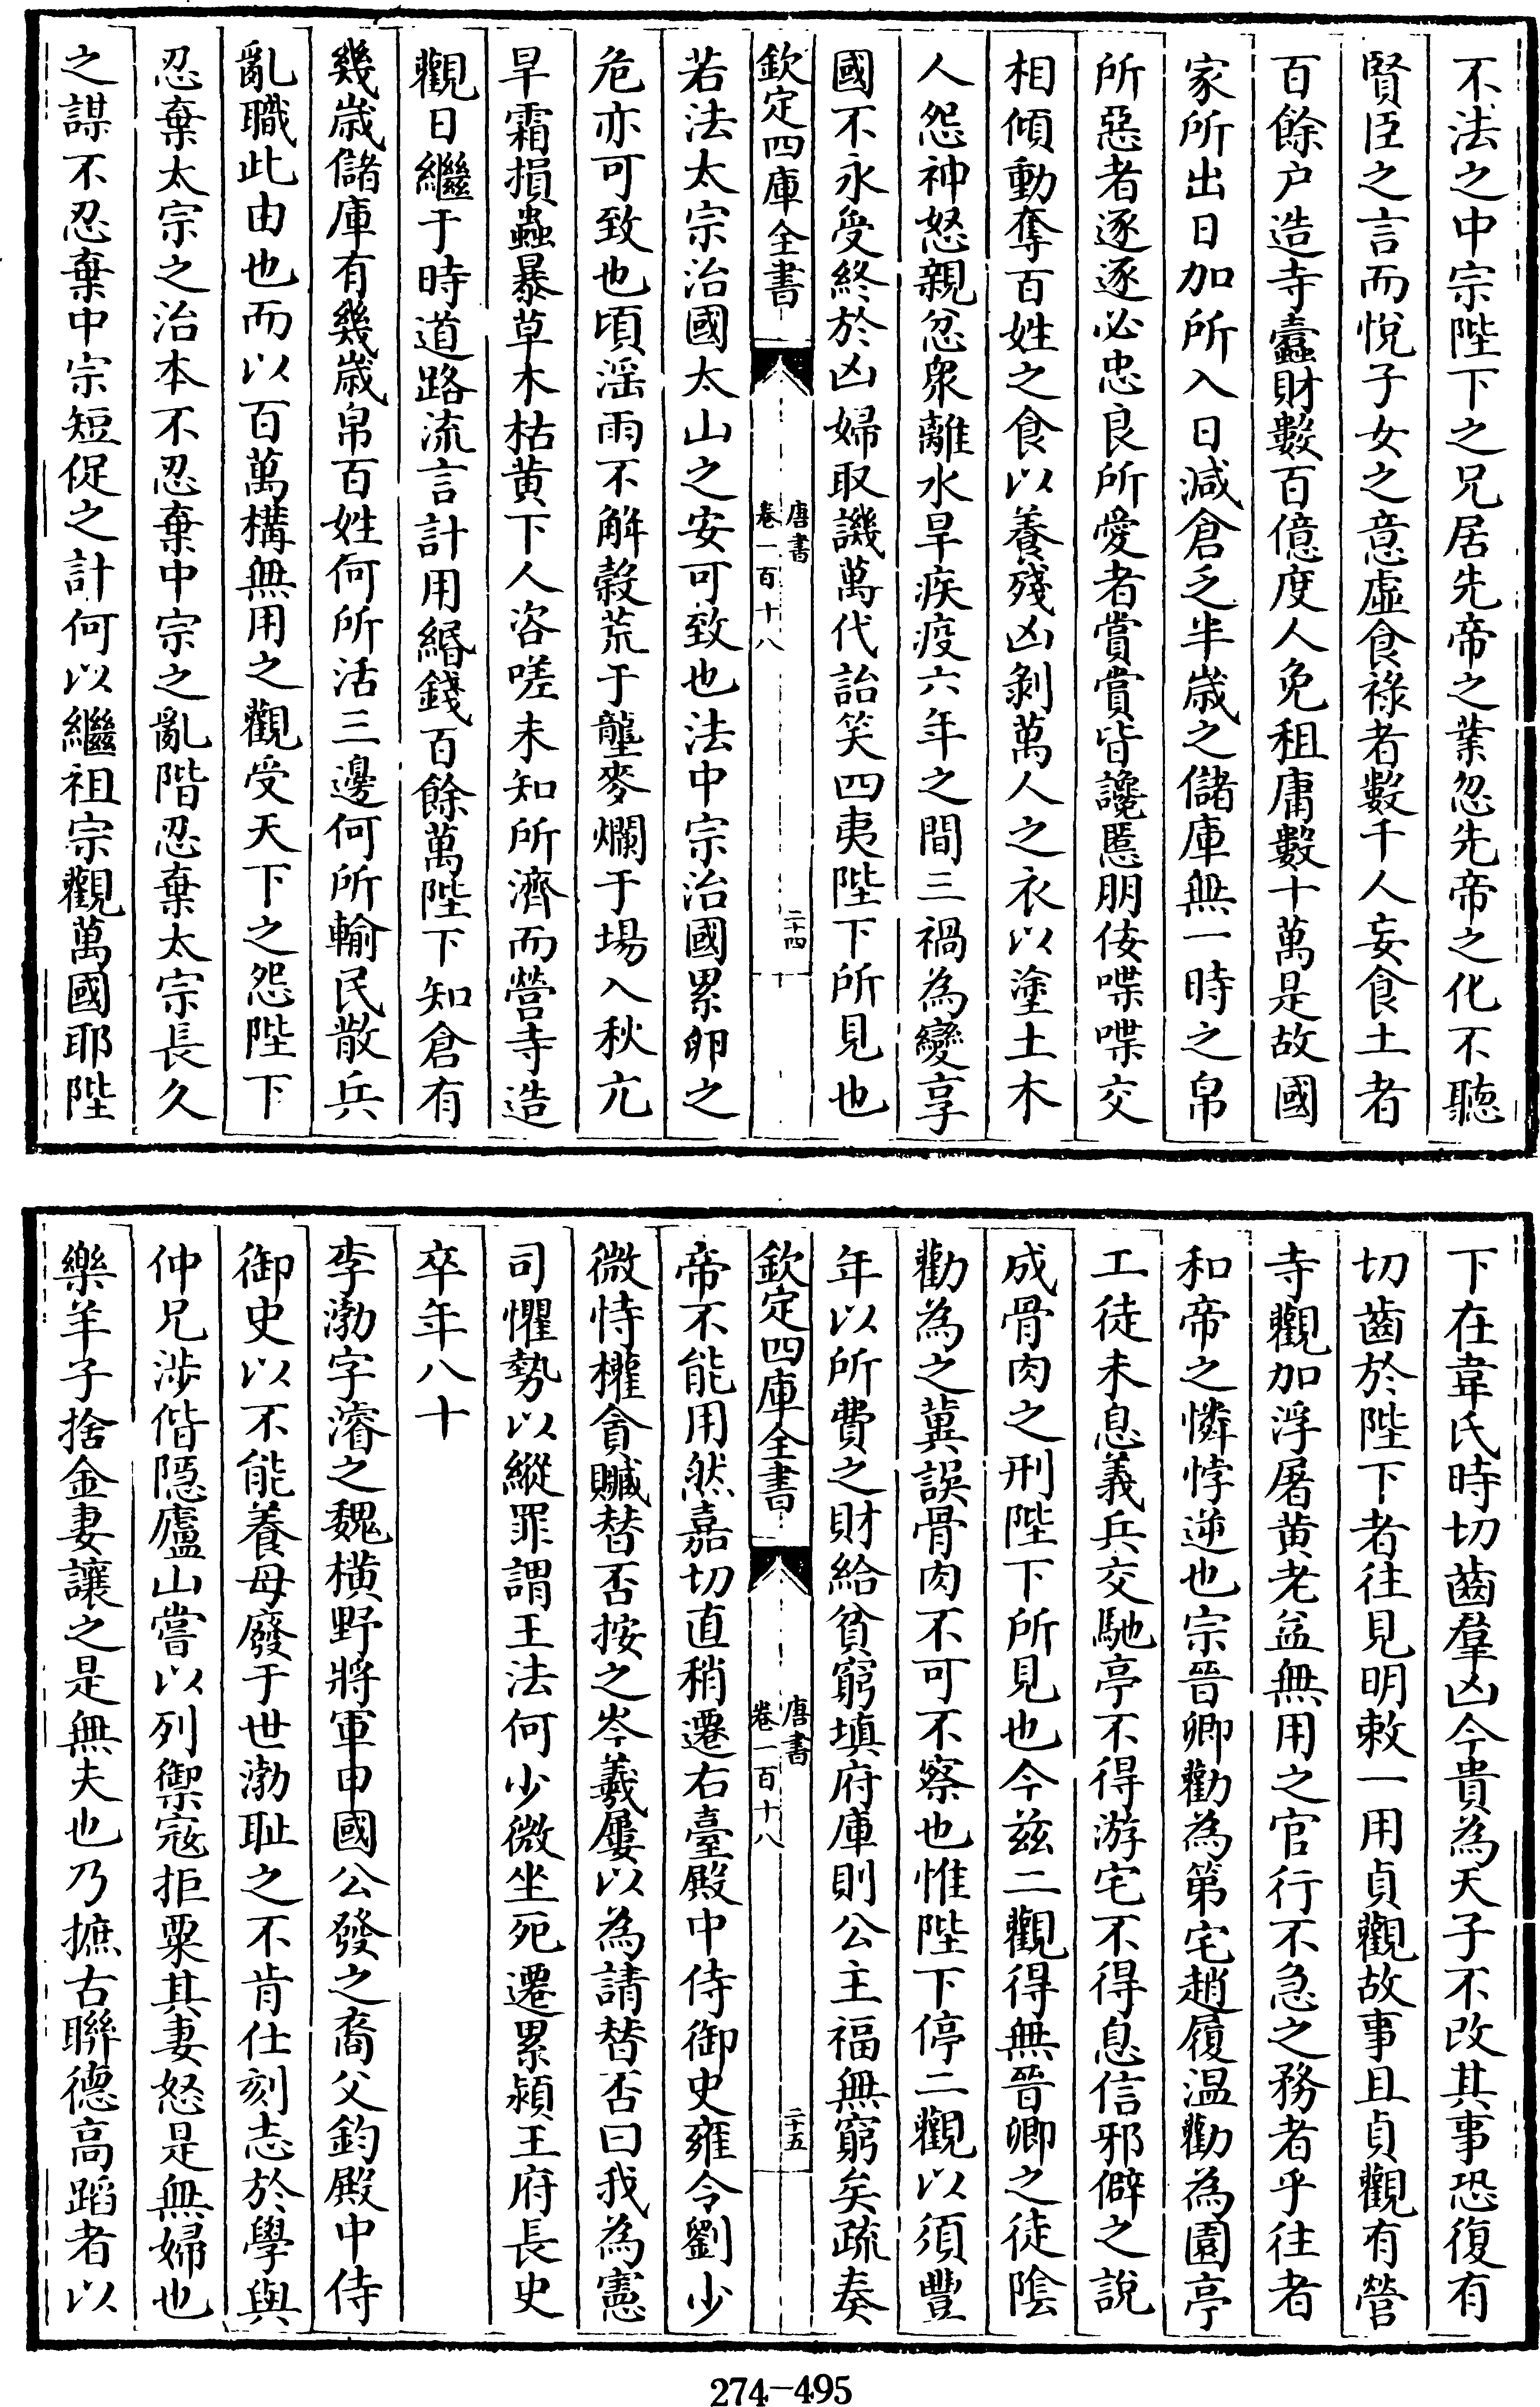 不法之中宗陛下之兄居先帝之業忽先帝之化不聽
賢臣之言而悅子女之意虛食祿者數千人妄食土者
百餘户造寺蠹財數百億度人免租庸數十萬是故國
家所出日加所入日減倉乏半歲之儲庫無一時之帛
所惡者逐逐必忠良所愛者賞賞皆讒慝朋佞喋喋交
相傾動奪百姓之食以養殘凶剝萬人之衣以塗土木
人怨神怒親忿衆離水旱疾疫六年之間三禍為變享
國不永受終於凶婦取譏萬代詒笑四夷陛下所見也
欽定四庫全書
唐書
卷一百十八
二十四
若法太宗治國太山之安可致也法中宗治國累卵之
危亦可致也頃滛雨不解穀荒于壟麥爛于場入秋亢
旱霜損蟲暴草木枯黄下人咨嗟未知所濟而營寺造
觀日繼于時道路流言計用緡錢百餘萬陛下知倉有
幾歲儲庫有幾歲帛百姓何所活三邊何所輸民散兵
亂職此由也而以百萬構無用之觀受天下之怨陛下
忍棄太宗之治本不忍棄中宗之亂階忍棄太宗長久
之謀不忍棄中宗短促之計何以繼祖宗觀萬國耶陛
下在韋氏時切齒羣凶今貴為天子不改其事恐復有
切齒於陛下者往見明敕一用貞觀故事且貞觀有營
寺觀加浮屠黄老益無用之官行不急之務者乎往者
和帝之憐悖逆也宗晉卿勸為第宅趙履温勸為園亭
工徒未息義兵交馳亭不得游宅不得息信邪僻之說
成骨肉之刑陛下所見也今兹二觀得無晉卿之徒陰
勸為之冀誤骨肉不可不察也惟陛下停二觀以須豐
年以所費之財給貧窮填府庫則公主福無窮矣疏奏
欽定四庫全書
唐書
卷一百十八
二十五
帝不能用然嘉切直稍遷右臺殿中侍御史雍令劉少
微恃權貪贓替否按之岑羲屢以為請替否曰我為憲
司懼勢以縱罪謂王法何少微坐死遷累潁王府長史
卒年八十
李渤字濬之魏横野將軍申國公發之裔父鈞殿中侍
御史以不能養母廢于世渤恥之不肯仕刻志於學與
仲兄涉偕隱廬山嘗以列禦寇拒粟其妻怒是無婦也
樂羊子捨金妻讓之是無夫也乃摭古聯德高蹈者以
274-495